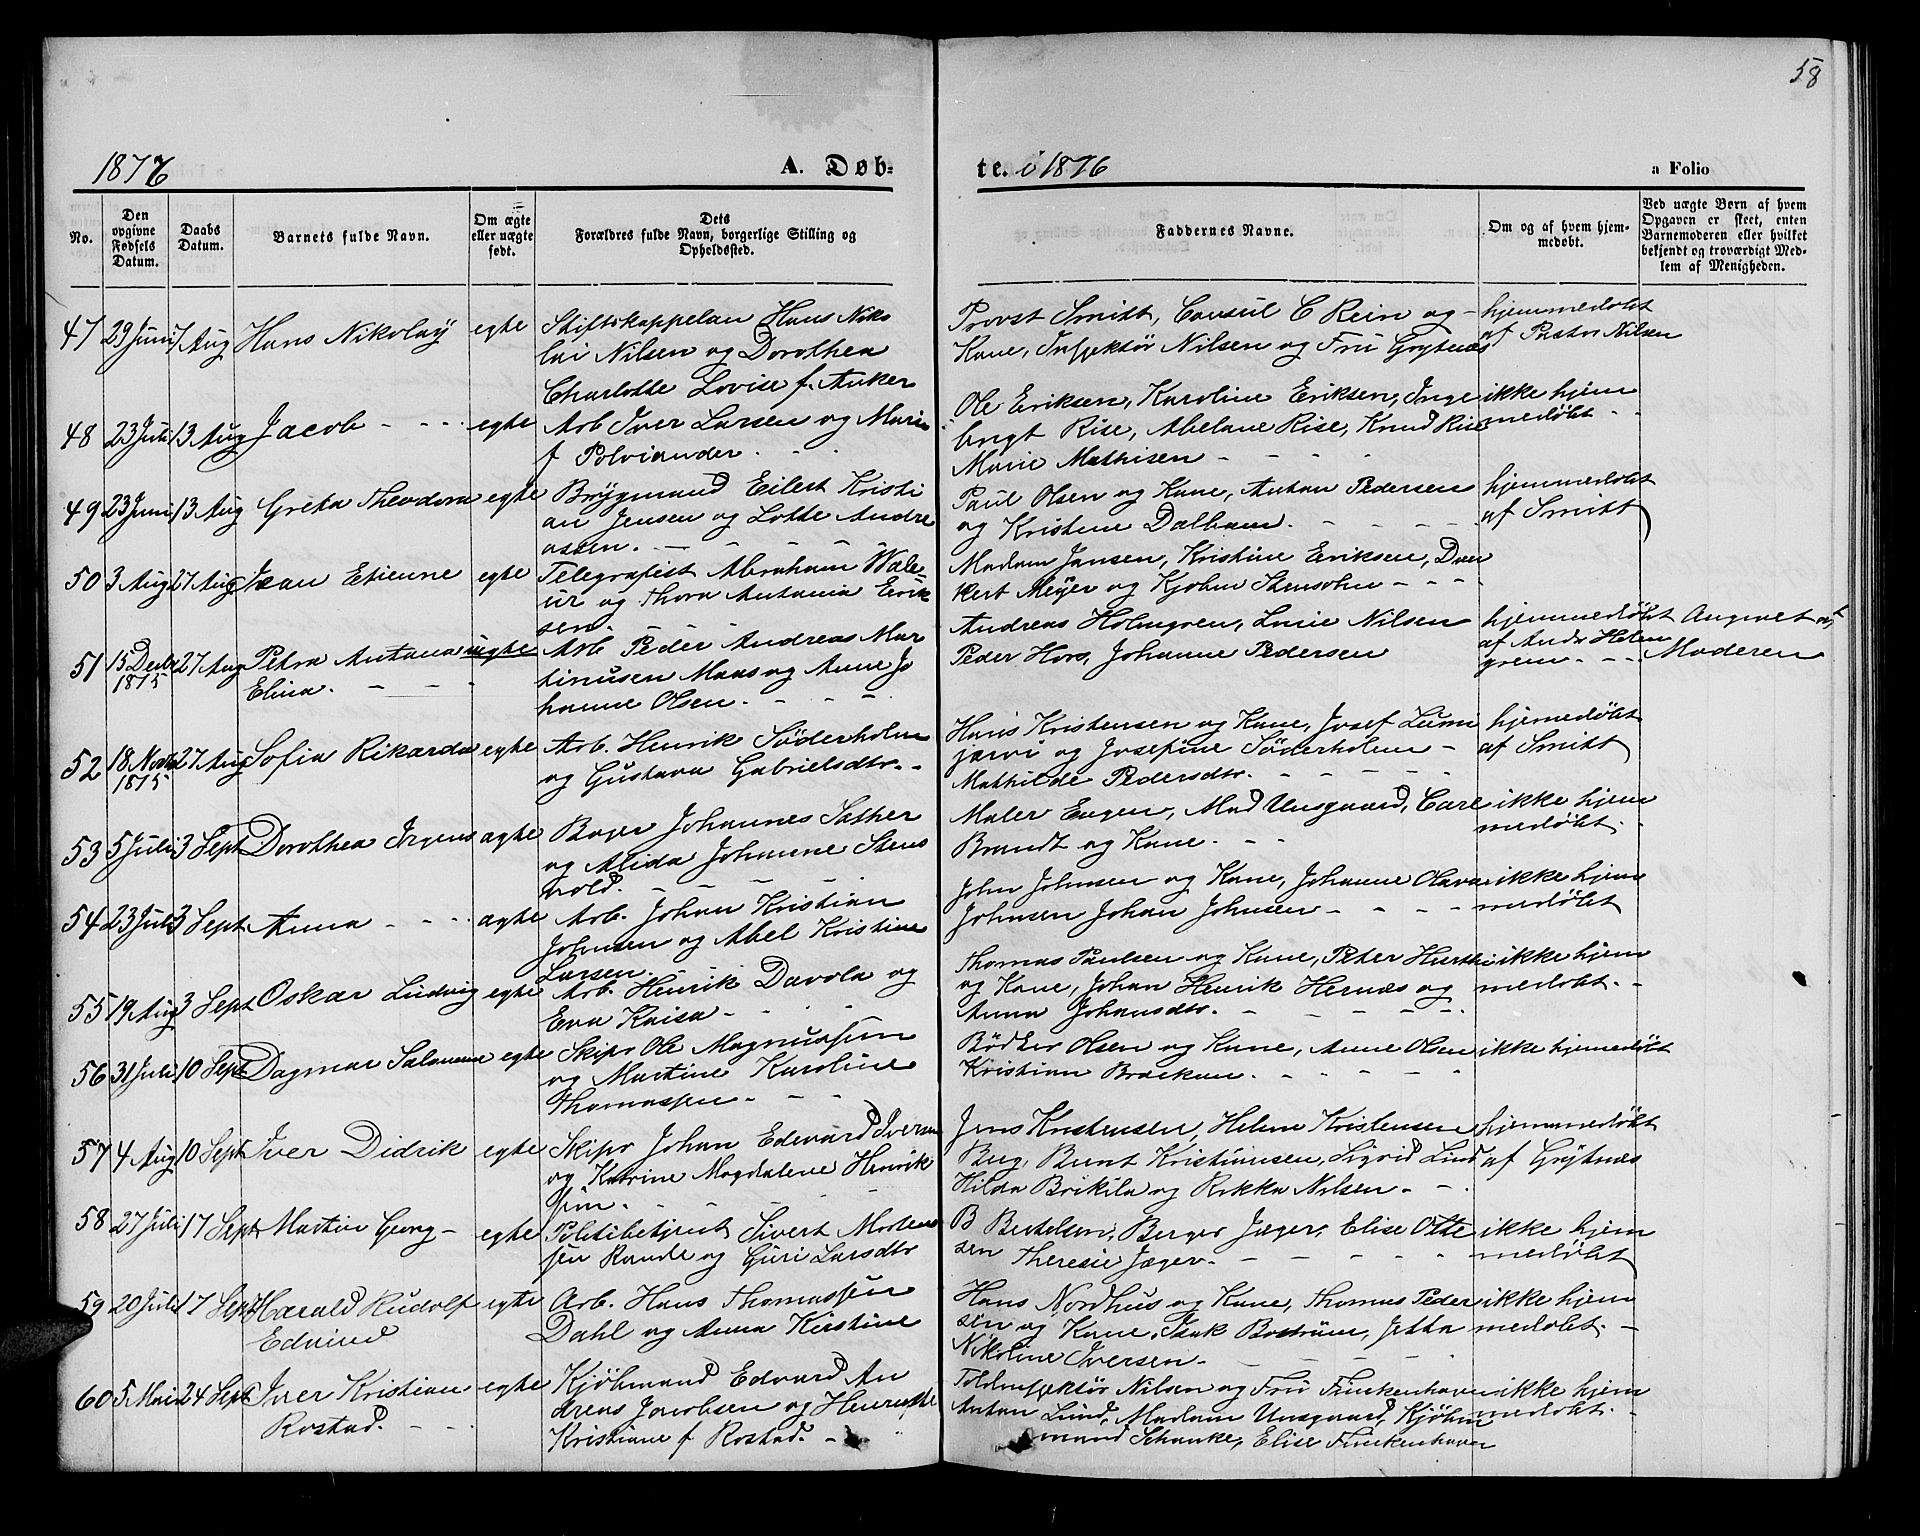 58
1876 A. Døb-
te. i 1876 a Folio
No.
Den opgivne Fødsels Datum.
Daabs Datum.
Barnets fulde Navn.
Om ægte eller uægte født.
Dets Forældres fulde Navn, borgerlige Stilling og Opholdssted.
Faddernes Navne.
Om og af hvem hjem-
medøbt.
Ved uægte Børn af hvem
Opgaven er skeet, enten
Barnemoderen eller hvilket
bekjendt og troværdigt Med-
lem af Menigheden.
47 29 Juni 7 Aug Hans Nikolay egte Stiftskappelan Hans Niko
lai Nilsen og Dorothea
Charlotte Lovise f. Anker
Provst Smitt, Consul C Rein og -
Kone, Inspektör Nilsen og Fru Grytnæs
hjemmedöbt
af Pastor Nilsen
48 23 Juli 13 Aug Jacob - - - egte Arb Iver Larsen og Marie
f Polviander. - -
Ole Eriksen, Karoline Eriksen, Inge
brigt Rise, Abelane Rise, Knud Rise
Marie Mathisen - - - -
ikke hjem
medöbt - -
49 23 Juni 13 Aug Greta Theodora egte Brygmand Eilert Kristi
an Jensen og Lotte Andre
assen. - - - - -
Paul Olsen og Kone, Anton Pedersen
og Kristine Dalham. - - - -
hjemmedöbt
af Smitt
50 3 Aug 27 Aug Jean Etienne egte Telegrafist Abraham Wale-
ur og Thora Antonia Erik
sen.
Madam Jansen, Kristine Eriksen,
kert Meyer og Kjoben Stensohn - - -
51 15 Decbr 1875 27 Aug Petra Antona uegte
Elina. - - -
Arb Peder Andreas Mar
tinusen Maas og Anne Jo
hanne Olsen. - - -
Andreas Holmgren, Line Nilsen
Peder Hors, Johanne Pedersen
hjemmedöbt
af Andr Holm
gren. - - -
Angivet af
Moderen
52 18 Novbr 1875 27 Aug Sofia Rikarda egte Arb. Henrik Söderholm
og Gustava Gabrielsdtr. -
Hans Kristensen og Kone, Josef Lumi
jarvi og Josefine Söderholm -
Mathilde Pedersdtr. - - - -
hjemedöbt
af Smitt
53 5 Juli 3 Sept Dorothea Irgens ægte Bager Johannes Sather
og Alida Johanne Stens
vold. - - - -
Maler Eugen, Mad Unsgaard, Carl
Brandt og Kone. - -
ikke hjem
medöbt. -
54 23 Juli 3 Sept Anna - - - ægte Arb. Johan Kristian
Johnsen og Abel Kristine
Larsen.
John Johnsen og Kone, Johanne Olava
Johnsen Johan Johnsen - - - -
ikke hjem
medöbt
55 19 Aug 3 Sept Oskar Ludvig egte Arb. Henrik Davola og
Eva Kaisa - - -
Thomas Paulsen og Kone, Peter Hurth
og Kone, Johan Henrik Hernæs og
Anna Johansdtr. - - - - -
ikke hjem
medöbt. -
56 31 Juli 10 Sept Dagmar Salamine egte Skipr Ole Magnussen
og Martine Karoline
Thomassen - - -
Bödker Olsen og Kone, Anne Olsen
Kristian Brækan. - - - - -
ikke hjemedöbt
57 4 Aug 10 Sept Iver Didrik egte Skipr Johan Edevard Iversen
og Katrine Magdalene Henrik
sen. - - -
Jens Kristensen, Helene Kristensen
Berg, Bernt Kristiansen, Sigrid Lind
Hilda Brikila og Rikka Nilsen - -
hjemmedöbt
af Grytnæs
58 27 Juli 17 Sept Martin Georg - egte Politibetjent Sivert Morten
sen Rande og Guri Larsdtr
B Bertelsen, Berger Jæger, Elise Otte
sen Theresie Jæger. - - - -
ikke hjem
medöbt
59 20 Juli 17 Sept Harald Rudolf egte
Edvind
Arb. Hans Thomassen
Dahl og Anna Kirstine
Hans Nordhus og Kone, Thomas Peder
sen og Kone, Isak Boström, Jetta
Nikoline Iversen - - - -
ikke hjem
medöbt. -
60 5 Mai 24 Sept Iver Kristian egte
Rostad. - -
Kjöbmand Edvard An
dreas Jacobsen og Henriette
Kristiane f Rostad. -
Toldinspektör Nilsen og Fru Finckenhaven
Antan Lund, Madam Unsgaard, Kjöb
mand Schanke, Elise Finckenhaven
ikke hjem
medöbt. -